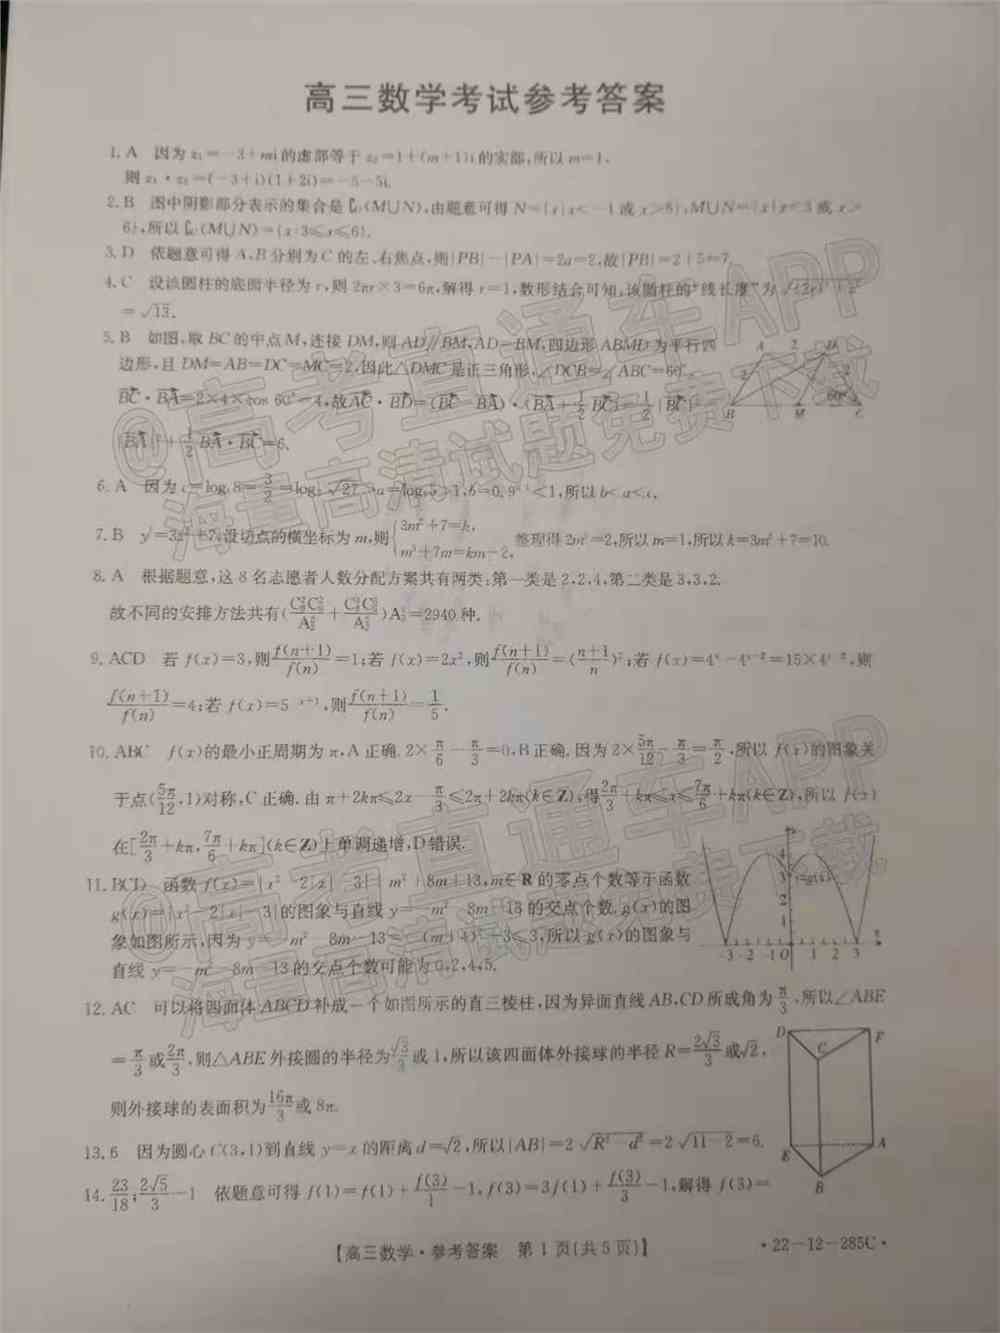 高三数学考试参考答案
1. A 因为z₁=-3+mi的虚部等于z₂=1+(m+1)i的实部,所以m=1,
则z₁·z₂=(-3+i)(1+2i)=-5-5i.
2. B 图中阴影部分表示的集合是∁(M∪N),由题意可得N={x|x<-1或x>6},M∪N={x|x<3或x>
6},所以∁(M∪N)={x|3≤x≤6}.
3. D 依题意可得A,B分别为C的左、右焦点,则|PB|-|PA|=2a=2,故|PB|=2+5=7.
4. C 设该圆柱的底面半径为r,则2πr×3=6π,解得r=1,数形结合可知,该圆柱的“线长度”为
=√13.
5. B 如图,取BC的中点M,连接DM,则AD∥BM,AD=BM,四边形ABMD为平行四
边形,且DM=AB=DC=MC=2,因此△DMC是正三角形,∠DCB=∠ABC=60°,
BC·BA=2×4×cos 60°=4,故AC·BD=(BC-BA)·(-BA+1/2 BC)=1/2|BC|²
|BA|²+1/2 BA·BC=6.
A 2 D 2 2 60° B M C
6. A 因为c=log₄8=3/2=log √27>a=log 5>1,b=0.9 <1,所以b<a<c.
7. B y′=3x²+7,设切点的横坐标为m,则{3m²+7=k, m³+7m=km-2, 整理得2m³=2,所以m=1,所以k=3m²+7=10.
8. A 根据题意,这8名志愿者人数分配方案共有两类:第一类是2,2,4,第二类是3,3,2.
故不同的安排方法共有( + )A₃³=2940种.
9. ACD 若f(x)=3,则f(n+1)/f(n)=1;若f(x)=2x²,则f(n+1)/f(n)=((n+1)/n)²;若f(x)=4ˣ-4ˣ⁻²=15×4ˣ⁻²,则
f(n+1)/f(n)=4;若f(x)=5⁻ˣ⁺¹,则f(n+1)/f(n)=1/5.
10. ABC f(x)的最小正周期为π,A正确.2×π/6-π/3=0,B正确.因为2×5π/12-π/3=π/2,所以f(x)的图象关
于点(5π/12,1)对称,C正确.由π+2kπ≤2x-π/3≤2π+2kπ(k∈Z),得2π/3+kπ≤x≤7π/6+kπ(k∈Z),所以f(x)
在[2π/3+kπ,7π/6+kπ](k∈Z)上单调递增,D错误.
11. BCD 函数f(x)=|x²-2|x|-3|+m²+8m+13,m∈R的零点个数等于函数
g(x)=|x²-2|x|-3|的图象与直线y=-m²-8m-13的交点个数.g(x)的图
象如图所示,因为y=-m²-8m-13=-(m+4)²+3≤3,所以g(x)的图象与
直线y=-m²-8m-13的交点个数可能为0,2,4,5.
y 4 3 2 1 y=g(x) -3 -2 -1 O 1 2 3 x
12. AC 可以将四面体ABCD补成一个如图所示的直三棱柱,因为异面直线AB,CD所成角为π/3,所以∠ABE
=π/3或2π/3,则△ABE外接圆的半径为√3/3或1,所以该四面体外接球的半径R=2√3/3或√2,
则外接球的表面积为16π/3或8π.
D F C E A B
13. 6 因为圆心C(3,1)到直线y=x的距离d=√2,所以|AB|=2√(R²-d²)=2√(11-2)=6.
14. 23/18;2√5/3-1 依题意可得f(1)=f(1)+f(3)/1-1,f(3)=3f(1)+f(3)/3-1,解得f(3)=
【高三数学·参考答案 第1页(共5页)】
·22-12-285C·
@高考直通车APP
海量高清试题免费下载
@高考直通车APP
海量高清试题免费下载